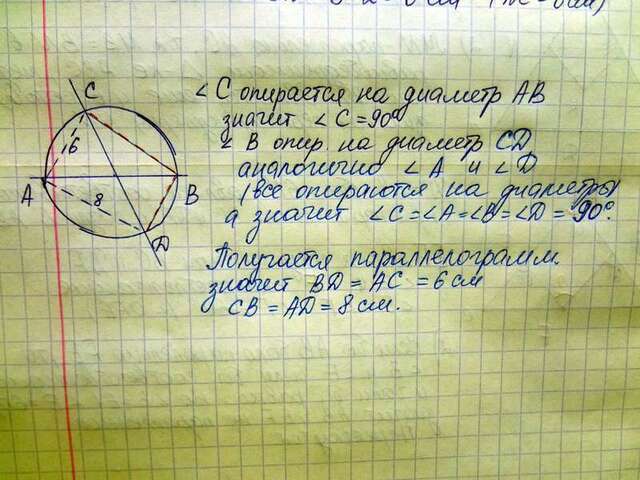 C
6
A
8
B
D
∠C опирается на диаметр AB
значит ∠C = 90°
∠B опир. на диаметр CD
аналогично ∠A и ∠D
(все опираются на диаметры)
а значит ∠C = ∠A = ∠B = ∠D = 90°.
Получается параллелограмм
значит BD = AC = 6 см
CB = AD = 8 см.